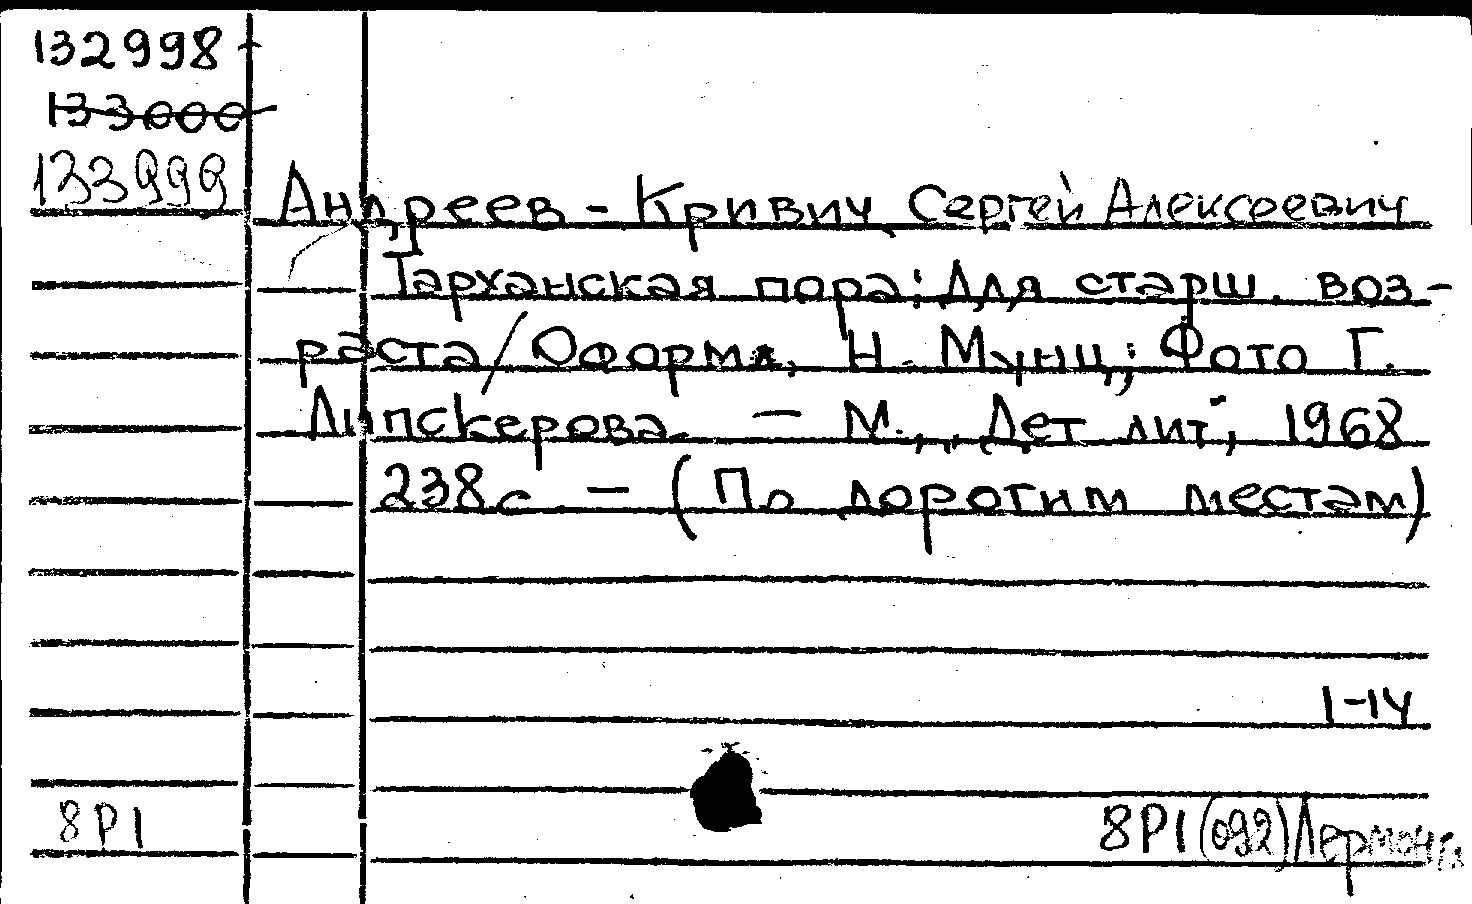 132998 +
133000
133999
Андреев - Кривич Сергей Алексеевич
Тарханская пора: Для старш. воз-
раста / Оформл. Н. Мунц; Фото Г.
Липскерова. — М., „Дет лит", 1968
238с. — (По дорогим местам)
1-14
8Р1
8Р1(092)Лермонтов